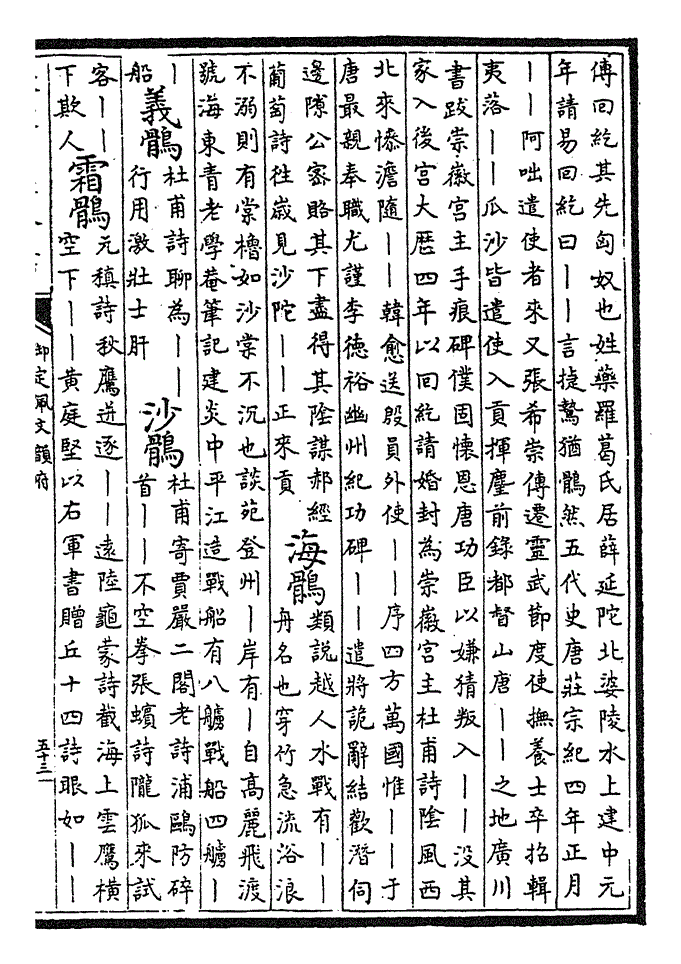 傳回紇其先匈奴也姓藥羅葛氏居薛延陀北婆陵水上建中元
年請易回紇曰——言捷鷙猶鶻然五代史唐莊宗紀四年正月
——阿咄遣使者來又張希崇傳遷靈武節度使撫養士卒招輯
夷落——瓜沙皆遣使入貢揮麈前錄都督山唐——之地廣川
書跋崇徽宫主手痕碑僕固懷恩唐功臣以嫌猜叛入——没其
家入後宫大厯四年以回紇請婚封為崇徽宫主杜甫詩陰風西
北來慘澹隨——韓愈送殷員外使——序四方萬國惟——于
唐最親奉職尤謹李德裕幽州紀功碑——遣將詭辭結歡潛伺
邊隙公密賂其下盡得其陰謀郝經
葡萄詩往歲見沙陀——正來貢
海鶻
類說越人水戰有——
舟名也穿竹急流浴浪
不溺則有棠櫓如沙棠不沉也談苑登州—岸有—自高麗飛渡
號海東青老學菴筆記建炎中平江造戰船有八艣戰船四艣—
—
船
義鶻
杜甫詩聊為——
行用激壯士肝
沙鶻
杜甫寄賈嚴二閣老詩浦鷗防碎
首——不空拳張蠙詩隴狐來試
客——
下欺人
霜鶻
元稹詩秋鷹迸逐——遠陸龜蒙詩截海上雲鷹橫
空下——黄庭堅以右軍書贈丘十四詩眼如——
御定佩文韻府
五十三